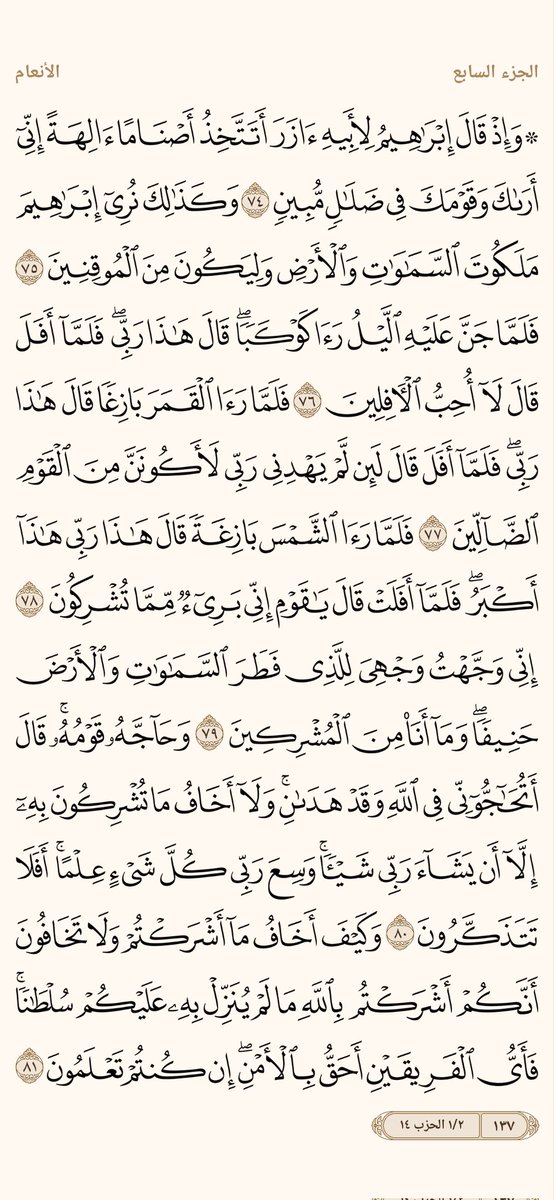 الجزء السابع
الأنعام
۞ وَإِذۡ قَالَ إِبۡرَٰهِيمُ لِأَبِيهِ ءَازَرَ أَتَتَّخِذُ أَصۡنَامًا ءَالِهَةً إِنِّيٓ
أَرَىٰكَ وَقَوۡمَكَ فِي ضَلَٰلٖ مُّبِينٖ ٧٤ وَكَذَٰلِكَ نُرِيٓ إِبۡرَٰهِيمَ
مَلَكُوتَ ٱلسَّمَٰوَٰتِ وَٱلۡأَرۡضِ وَلِيَكُونَ مِنَ ٱلۡمُوقِنِينَ ٧٥
فَلَمَّا جَنَّ عَلَيۡهِ ٱلَّيۡلُ رَءَا كَوۡكَبٗاۖ قَالَ هَٰذَا رَبِّيۖ فَلَمَّآ أَفَلَ
قَالَ لَآ أُحِبُّ ٱلۡأٓفِلِينَ ٧٦ فَلَمَّا رَءَا ٱلۡقَمَرَ بَازِغٗا قَالَ هَٰذَا
رَبِّيۖ فَلَمَّآ أَفَلَ قَالَ لَئِن لَّمۡ يَهۡدِنِي رَبِّي لَأَكُونَنَّ مِنَ ٱلۡقَوۡمِ
ٱلضَّآلِّينَ ٧٧ فَلَمَّا رَءَا ٱلشَّمۡسَ بَازِغَةٗ قَالَ هَٰذَا رَبِّي هَٰذَآ
أَكۡبَرُۖ فَلَمَّآ أَفَلَتۡ قَالَ يَٰقَوۡمِ إِنِّي بَرِيٓءٞ مِّمَّا تُشۡرِكُونَ ٧٨
إِنِّي وَجَّهۡتُ وَجۡهِيَ لِلَّذِي فَطَرَ ٱلسَّمَٰوَٰتِ وَٱلۡأَرۡضَ
حَنِيفٗاۖ وَمَآ أَنَا۠ مِنَ ٱلۡمُشۡرِكِينَ ٧٩ وَحَآجَّهُۥ قَوۡمُهُۥۚ قَالَ
أَتُحَٰٓجُّوٓنِّي فِي ٱللَّهِ وَقَدۡ هَدَىٰنِۚ وَلَآ أَخَافُ مَا تُشۡرِكُونَ بِهِۦٓ
إِلَّآ أَن يَشَآءَ رَبِّي شَيۡـٔٗاۚ وَسِعَ رَبِّي كُلَّ شَيۡءٍ عِلۡمًاۚ أَفَلَا
تَتَذَكَّرُونَ ٨٠ وَكَيۡفَ أَخَافُ مَآ أَشۡرَكۡتُمۡ وَلَا تَخَافُونَ
أَنَّكُمۡ أَشۡرَكۡتُم بِٱللَّهِ مَا لَمۡ يُنَزِّلۡ بِهِۦ عَلَيۡكُمۡ سُلۡطَٰنٗاۚ
فَأَيُّ ٱلۡفَرِيقَيۡنِ أَحَقُّ بِٱلۡأَمۡنِۖ إِن كُنتُمۡ تَعۡلَمُونَ ٨١
١٣٧
١/٢ الحزب ١٤